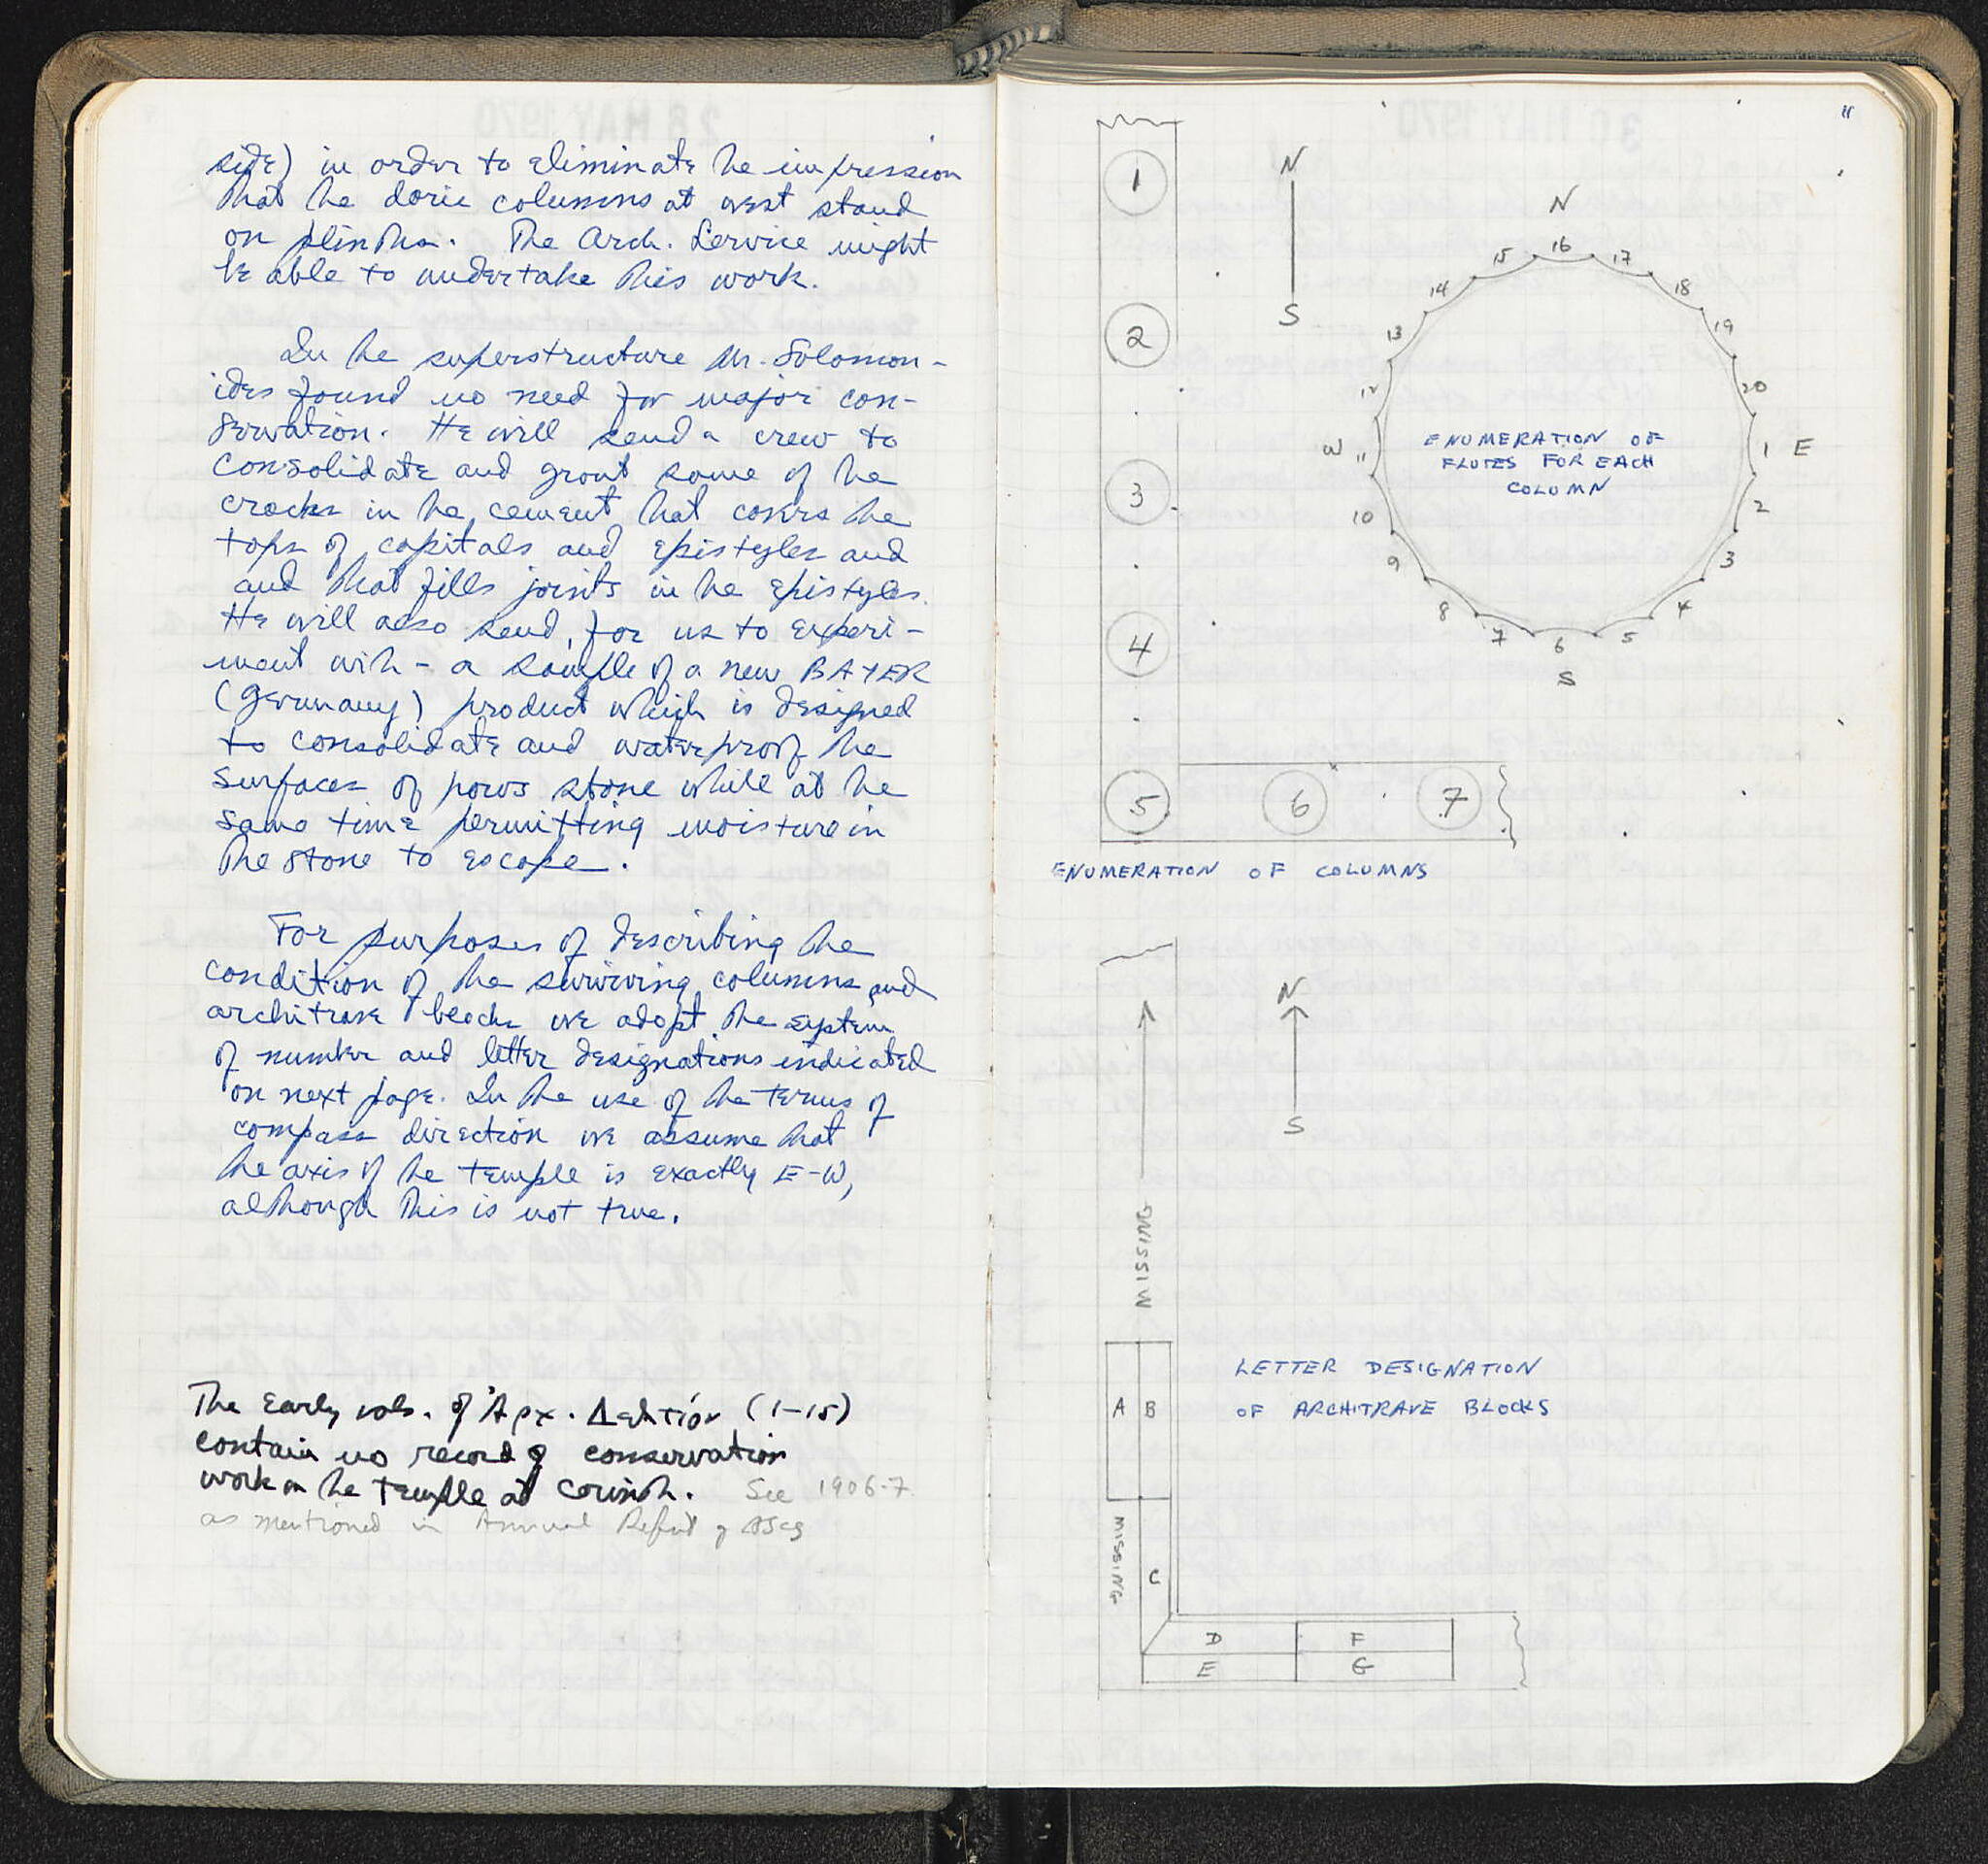 side) in order to eliminate the impression
that the doric columns at west stand
on plinths. The Arch. Service might
be able to undertake this work.
In the superstructure Mr. Solomon-
ides found no need for major con-
servation. He will send a crew to
consolidate and grout some of the
cracks in the cement that covers the
tops of capitals and epistyles and
and that fills joints in the epistyles.
He will also send, for us to experi-
ment with - a sample of a new BAYER
(Germany) product which is designed
to consolidate and waterproof the
surfaces of porous stone while at the
same time permitting moisture in
the stone to escape.
For purposes of describing the
condition of the surviving columns and
architrave blocks we adopt the system
of number and letter designations indicated
on next page. In the use of the terms of
compass direction we assume that
the axis of the temple is exactly E-W,
although this is not true.
The early vols. of Ἀρχ. Δελτίον (1-15)
contain no record of conservation
work on the temple at Corinth. See 1906-7
as mentioned in Annual Report of ASCS
11
1
2
3
4
5 6 7
N
S
ENUMERATION OF COLUMNS
N
16
15 17
14 18
13 19
12 20
W 11 1 E
10 2
9 3
8 4
7 5
6
S
ENUMERATION OF
FLUTES FOR EACH
COLUMN
N
S
MISSING
A B
LETTER DESIGNATION
OF ARCHITRAVE BLOCKS
MISSING
C
D F
E G
28 MAY 1970
30 MAY 1970